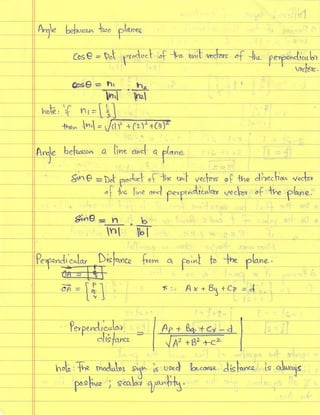 Angle between two planes
Cos θ = Dot product of the unit vectors of the perpendicular
vector.
Cos θ = n₁ . n₂
|n₁| |n₂|
note: if n₁ = [1 2 3]
then |n| = √(1)² + (2)² + (3)²
Angle between a line and a plane.
Sin θ = Dot product of the unit vectors of the direction vector
of the line and perpendicular vector of the plane.
Sin θ = n . b
|n| |b|
Perpendicular Distance from a point to the plane.
OA = [p q r]
π: Ax + By + Cz = d
Perpendicular
distance = | Ap + Bq + Cr - d |
√A² + B² + C²
note: The modulus sign is used because distance is always
positive ; scalar quantity.